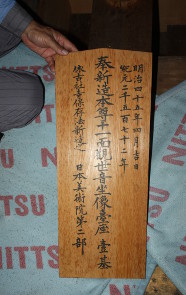 明治四十五年四月吉日
紀元二千五百七十二年
奉新造本尊十一面観世音坐像臺座壹基
依古社寺保存法新造之
日本美術院第二部
NITTSU
NITTSU
NITTSU
NITTSU
NITTSU